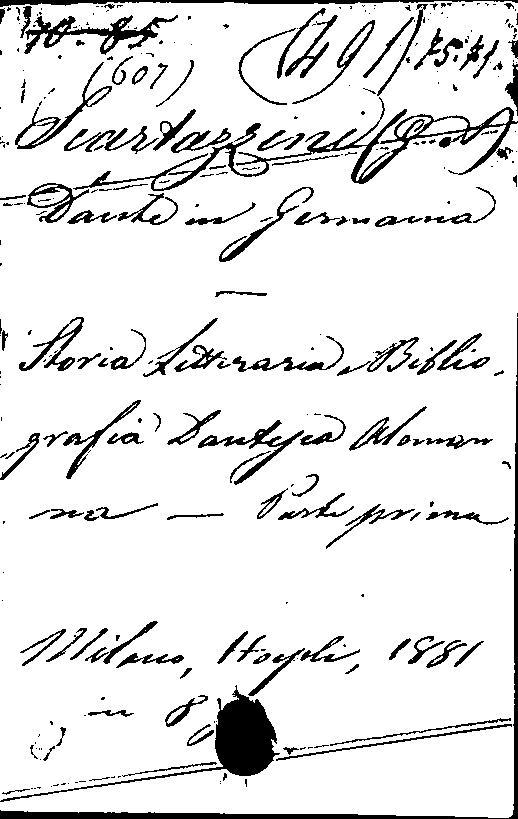 70. 85.
(607) (491) 75.71.
Scartazzini (G. A.)
Dante in Germania
—
Storia Letteraria e Biblio-
grafia Dantesca Aleman
na — Parte prima
Milano, Hoepli, 1881
in 8